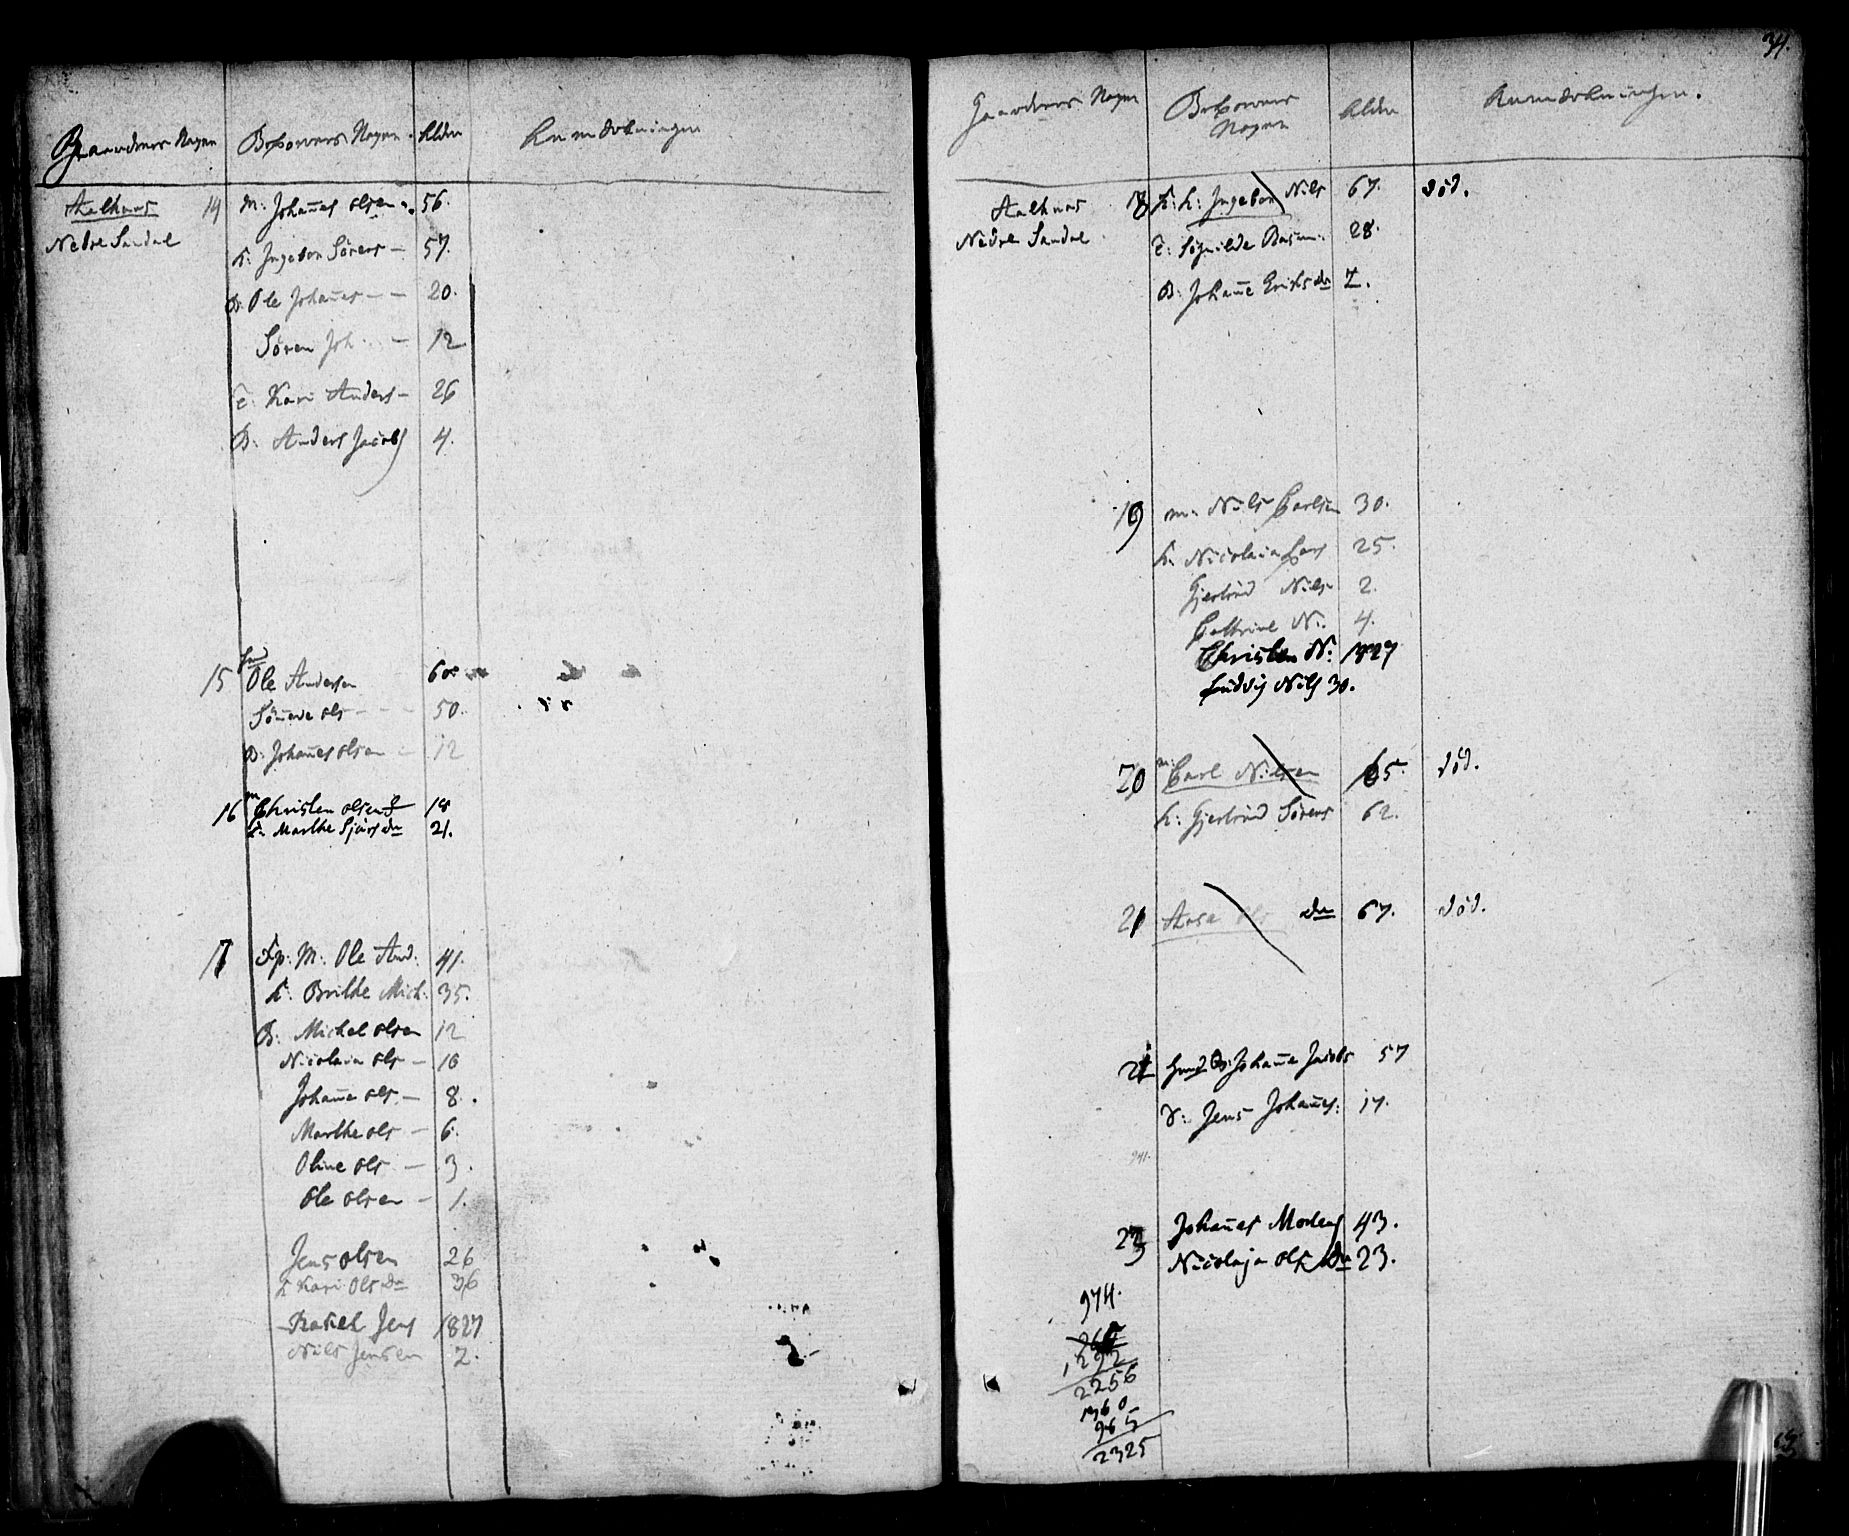 Gaardenes Nagen Beboernes Nagen. Alder Anmærkninger
Aalhuus 14 M: Johañes Olsen 56.
Nedre Sandal
K: Ingebor Sørens – 57.
B: Ole Johañes – – 20.
Søren Joh – 12
E: Kari Anders – 26
B: Anders Jacobs 4.
15 Ole Andersen 60
Ols – – – 50.
B: Johañes Olsen – 12
16 Christen Olsen 18
K: Marthe dr 21.
17 M: Ole And: 41.
K: Brithe Mich. 35.
B: Michel Olsen 12
Nicolaia Ols – 10
Johañe Ols – 8.
Marthe Ols – 6.
Oline Ols – 3.
Ole Olsen – 1.
Jens Olsen 26
K Kari Ols dr 36
Rasmus Jens 1827
Nils Jensen 2.
34.
Gaardenes Nagen Beboernes Nagen Alder Anmærkninger.
Aalhuus 18 Ingebor Nils 67. død.
Nedre Sandal
E: 28.
B: Johañe Eriks dr 7.
19 m: Nils Carlsen 30.
K. Nicolaia Lars 25.
Gjertrud Nils 2.
Cathrine N: 4.
Christen N: 1827
Ludvig Nils 30.
20 m: Carl Nilsen 65. død.
K: Gjertrud Sørens 62.
21 Aase Ols dr 67. død.
22 Johañe Jacobs 57
Jens Johañes: 17.
941.
23 Johañes Mortens 43.
Nicolaja Ols dr 23.
974.
1292
2256
1360
965
2325